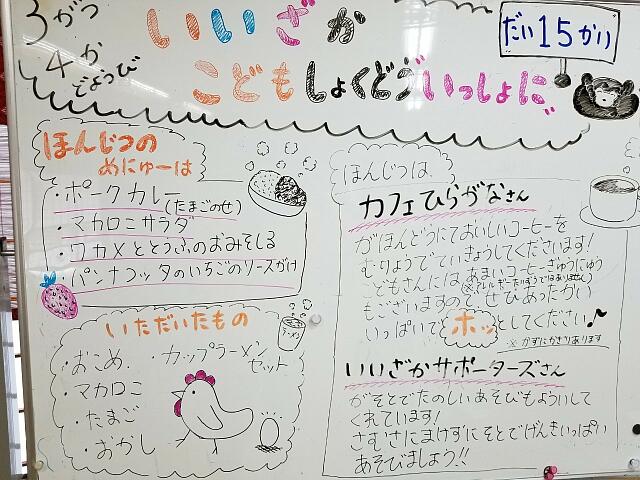 3がつ
4か
どようび
いいざか
こどもしょくどごいっしょに
だい15かい
ほんじつの
めにゅーは
・ポークカレー(たまごのせ)
・マカロニサラダ
・ワカメととうふのおみそしる
・パンナコッタのいちごのソースがけ
いただいたもの
・おこめ
・マカロニ
・たまご
・おかし
カップラーメン
セット
ラーメン
ほんじつは
カフェひらがなさん
がほんどうにておいしいコーヒーを
むりょうでていきょうしてくださいます!
こどもさんにはあまいコーヒーぎゅうにゅう
もございますのでぜひあったかい
いっぱいでホッとしてください♪
※かずにかぎりあります
いいざかサポーターズさん
がそとでたのしいあそびもよういして
くれています!
さむさにまけずにそとでげんきいっぱい
あそびましょう!!